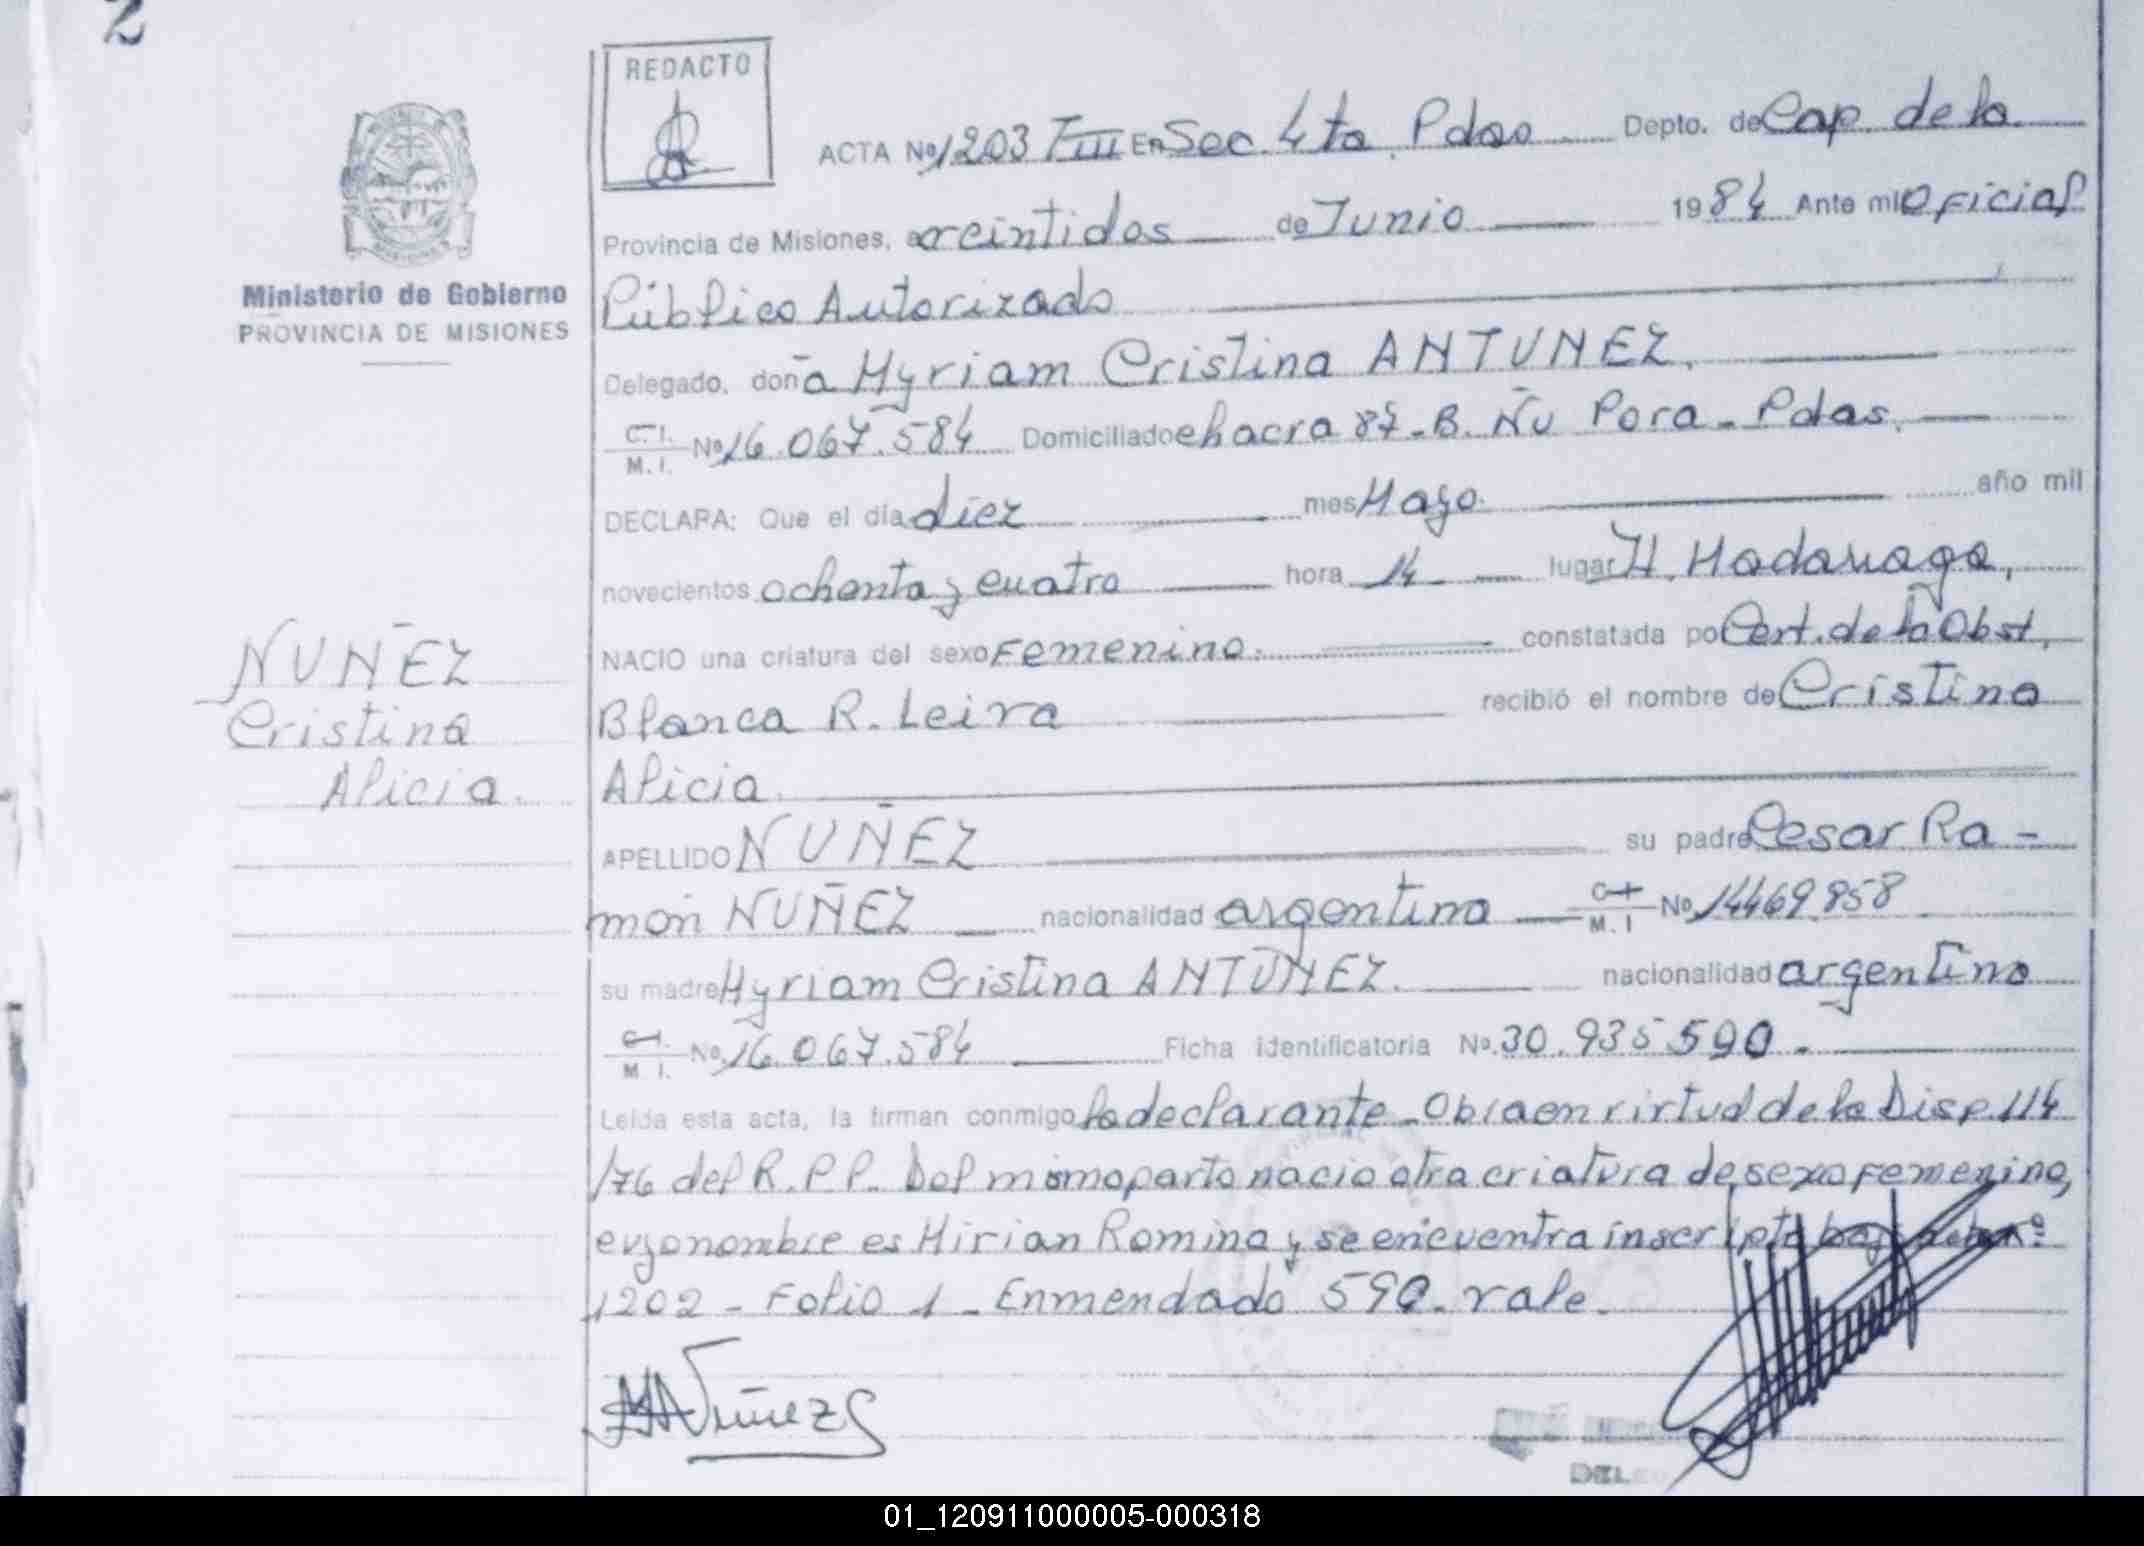 2
REDACTO
ACTA Nº 1203 TIII En Sec. 4ta. Pdas Depto. de Cap. de la
Provincia de Misiones, a veintidos de Junio 1984 Ante mi Oficial
Público Autorizado
Ministerio de Gobierno
PROVINCIA DE MISIONES
Delegado, doña Myriam Cristina ANTUNEZ.
C.I. M.I. Nº 16.067.584 Domiciliado chacra 87-B. Ñu Pora - Pdas.
DECLARA: Que el día diez mes Mayo. año mil
novecientos ochenta y cuatro hora 14 lugar H. Madariaga,
NACIO una criatura del sexo Femenino. constatada po Cert. de la Obst.
Blanca R. Leiva recibió el nombre de Cristina
Alicia.
NUÑEZ
Cristina
Alicia.
APELLIDO NUÑEZ su padre Cesar Ra-
mon NUÑEZ nacionalidad argentina C.I. M.I Nº 14469.858
su madre Myriam Cristina ANTUNEZ. nacionalidad argentina
C.I. M.I. Nº 16.067.584 Ficha identificatoria Nº 30.935590.
Leida esta acta, la firman conmigo la declarante - Obra en virtud de la Disp. 114
/76 del R.P.P. Del mismo parto nacio otra criatura de sexo femenino,
cuyo nombre es Mirian Romina y se encuentra inscripta bajo acta nº
1202 - Folio 1 - Enmendado 590. vale.
Nuñez
DEL
01_120911000005-000318